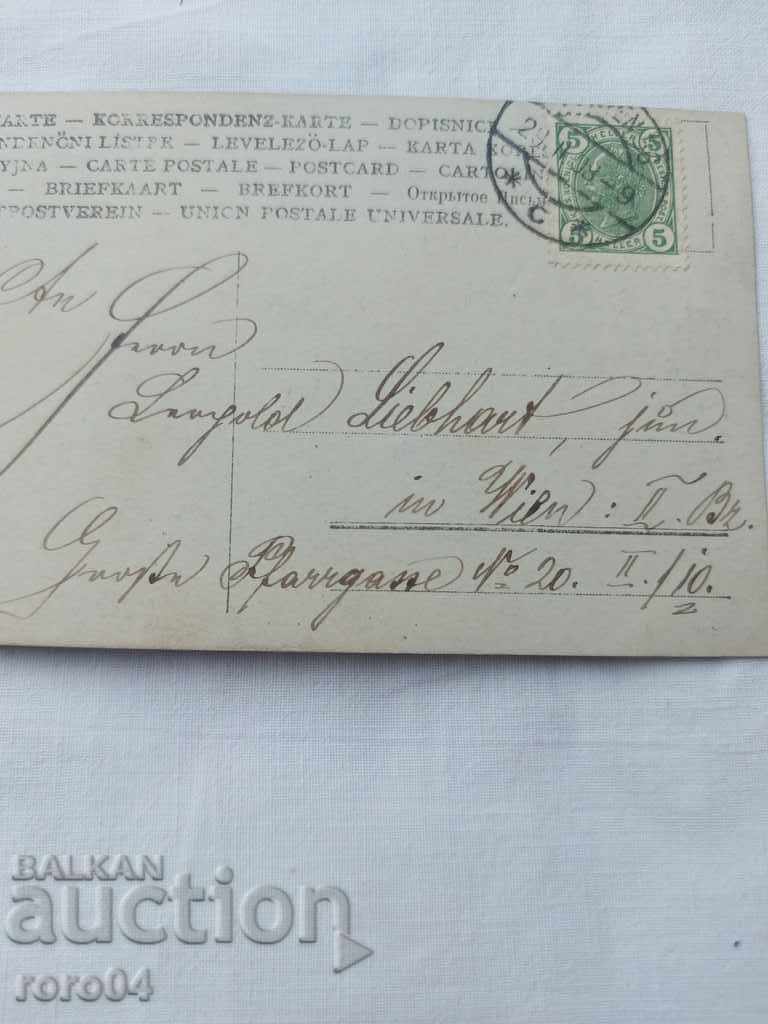 KARTE – KORRESPONDENZ-KARTE – DOPISNICE
NDENČNI LÍSTEK – LEVELEZÖ-LAP – KARTA KORES
YJNA – CARTE POSTALE – POSTCARD – CARTOLIN
– BRIEFKAART – BREFKORT – Открытое Письм
TPOSTVEREIN – UNION POSTALE UNIVERSALE.
WIEN
29
C
5 HELLER 5
5 HELLER 5
An
Herrn
Leopold Liebhart, jun.
in Wien: II. Bz.
Große Pfarrgasse No 20. II./10.
BALKAN
auction
roro04